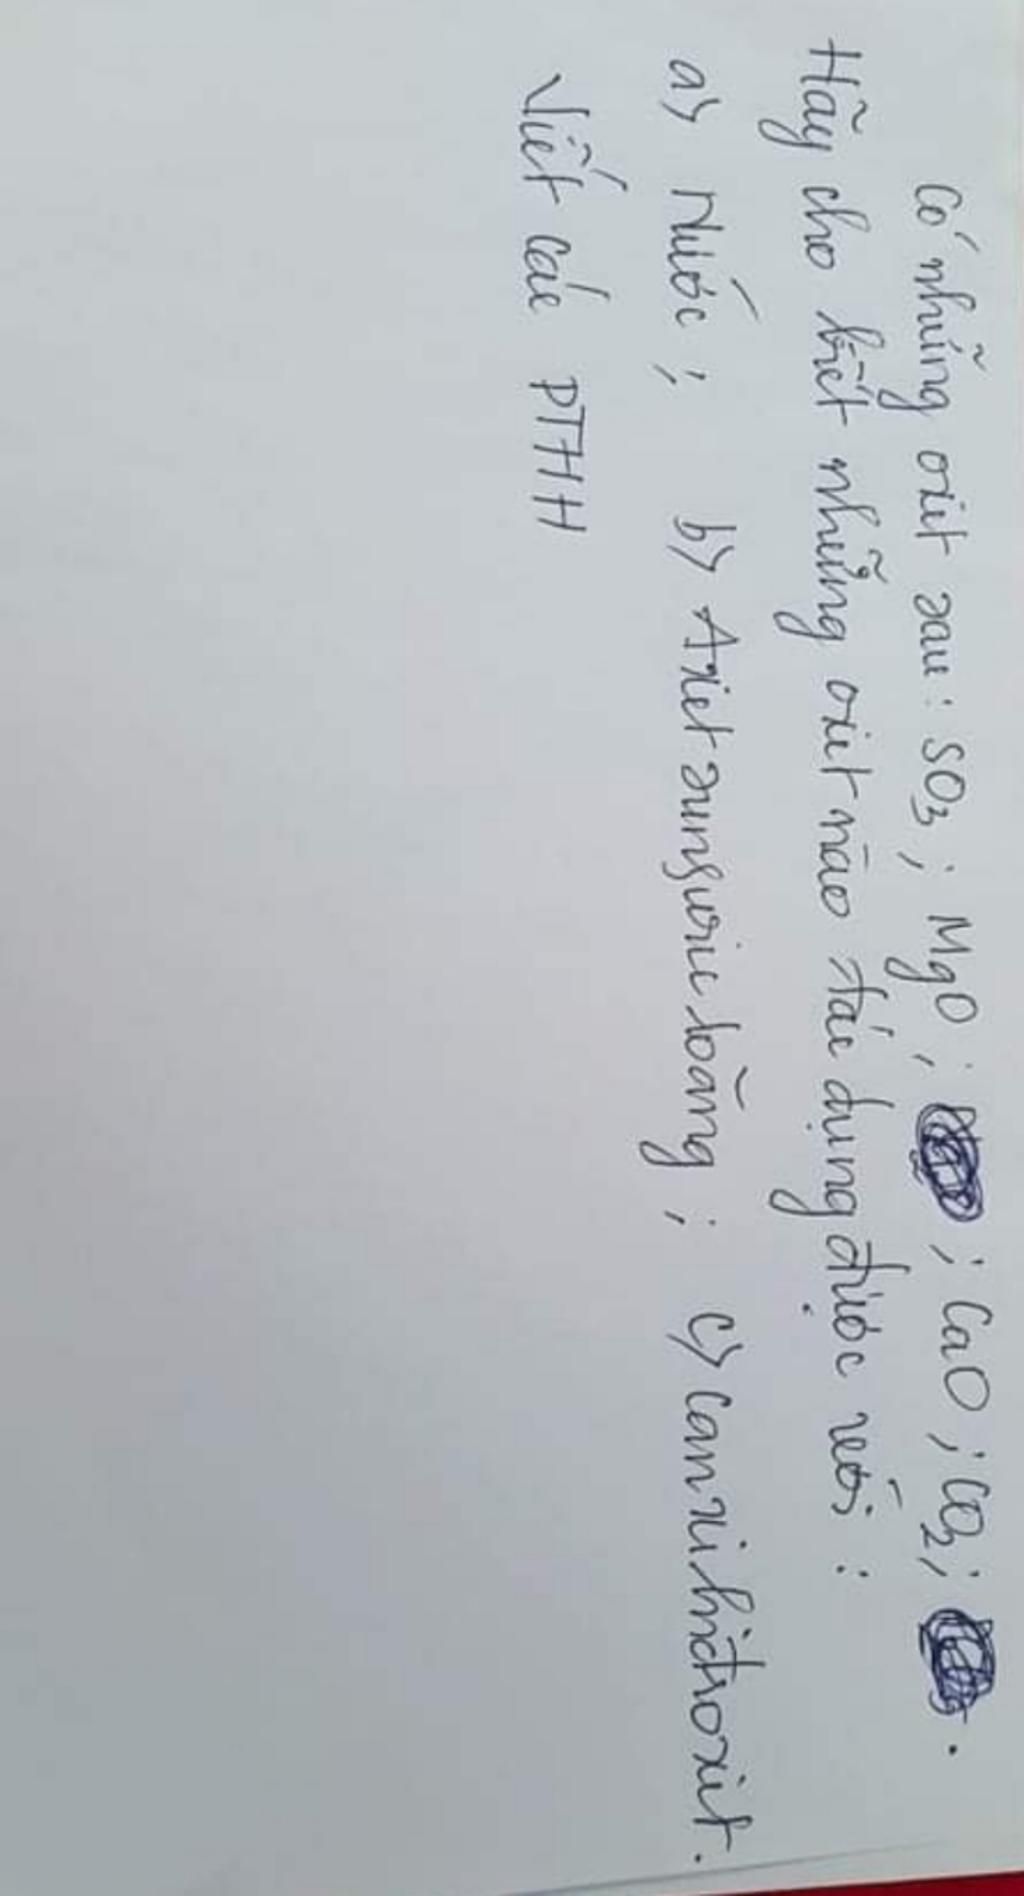 Có những oxit sau: SO3; MgO; ; CaO; CO2; .
Hãy cho biết những oxit nào tác dụng được với:
a) Nước; b) Axiet sunguric loãng; c) canxihiđroxit.
Viết các PTHH